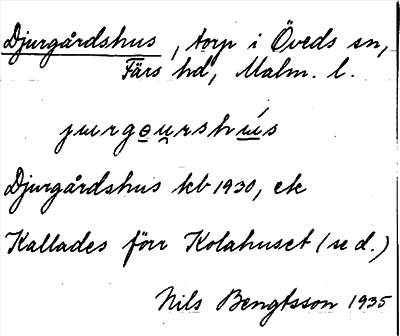 Djurgårdshus, torp i Öveds sn,
Färs hd, Malm. l.
jurgourshús
Djurgårdshus kb 1930, ek
Kallades förr Kolahuset (se d.)
Nils Bengtsson 1935